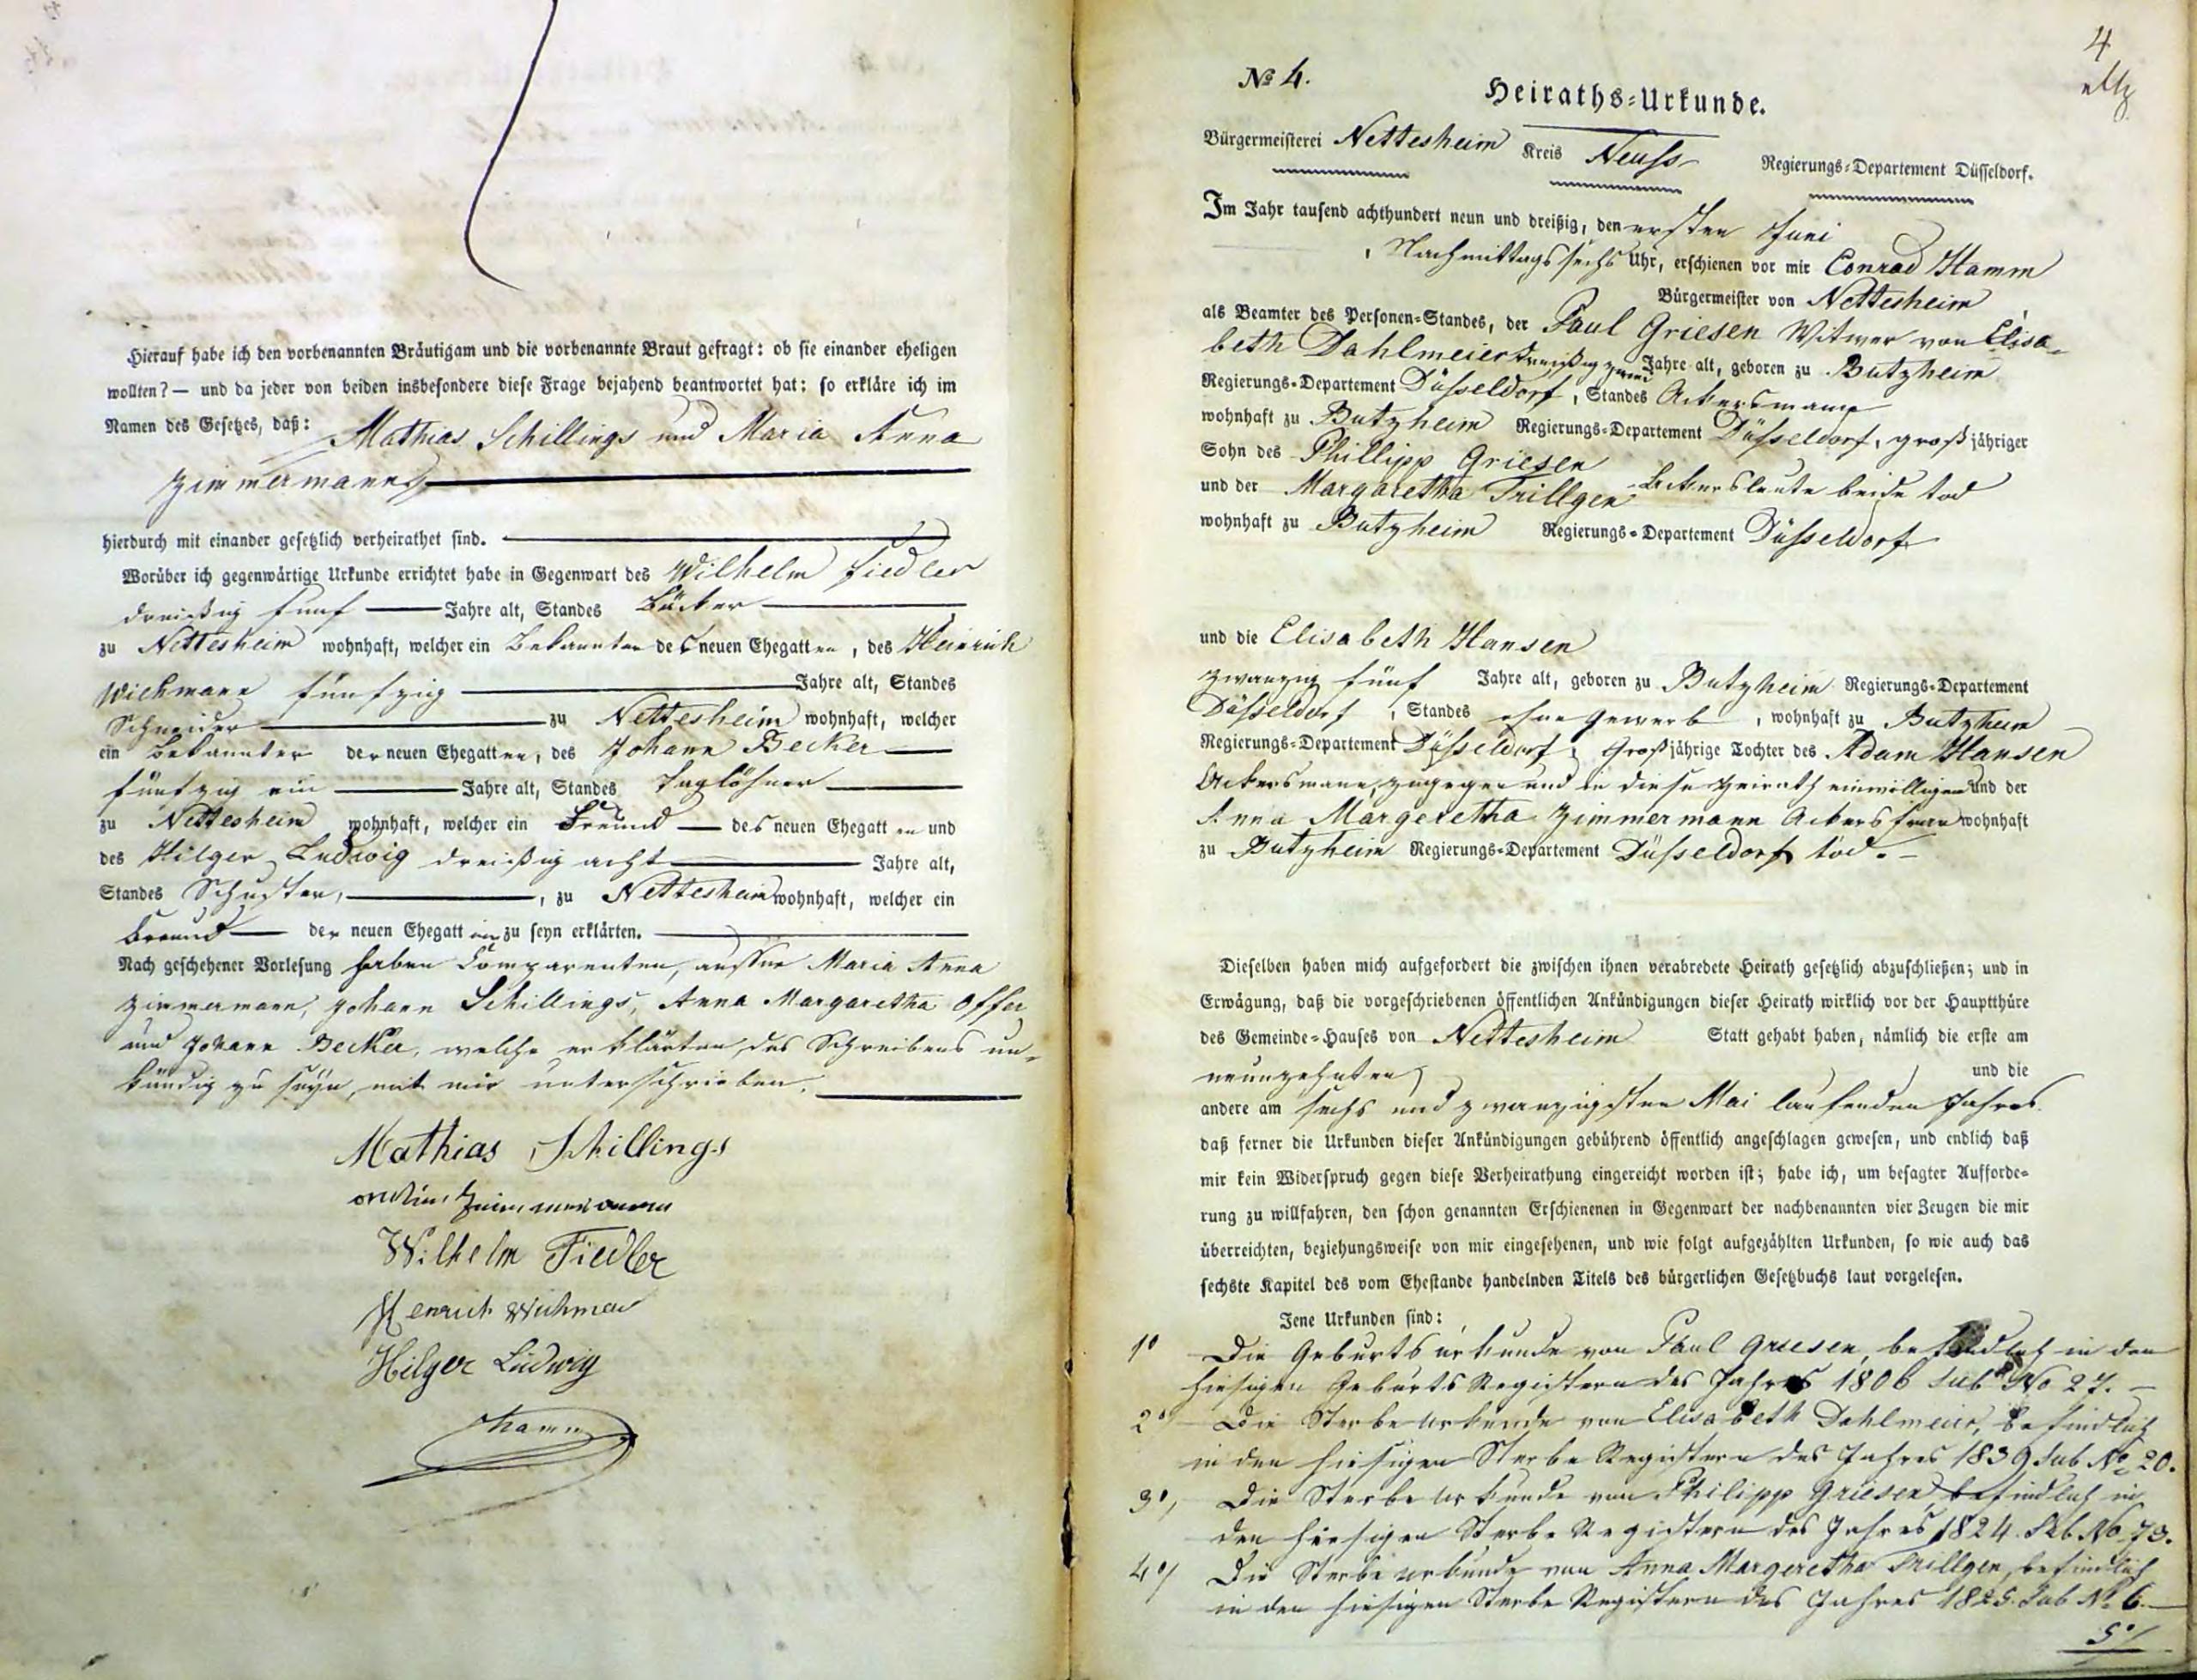 Hierauf habe ich den vorbenannten Bräutigam und die vorbenannte Braut gefragt: ob sie einander eheligen
wollten? — und da jeder von beiden insbesondere diese Frage bejahend beantwortet hat: so erkläre ich im
Namen des Gesetzes, daß: Mathias Schillings und Maria Anna
Zimmermann
hierdurch mit einander gesetzlich verheirathet sind.
Worüber ich gegenwärtige Urkunde errichtet habe in Gegenwart des Wilhelm Fiedler
dreißig fünf Jahre alt, Standes Bäcker
zu Nettesheim wohnhaft, welcher ein Bekannter des neuen Ehegatten, des Heinrich
Wichmann fünfzig Jahre alt, Standes
Schneider zu Nettesheim wohnhaft, welcher
ein Bekannter der neuen Ehegatten, des Johann Becker
fünfzig ein Jahre alt, Standes Taglöhner
zu Nettesheim wohnhaft, welcher ein Freund des neuen Ehegatten und
des Hilger Ludwig dreißig acht Jahre alt,
Standes Schuster, zu Nettesheim wohnhaft, welcher ein
Freund der neuen Ehegatten zu seyn erklärten.
Nach geschehener Vorlesung haben Comparenten, ausser Maria Anna
Zimmermann, Johann Schillings, Anna Margaretha Offer
und Johann Becker, welche erklärten, des Schreibens un-
kündig zu seyn, mit mir unterschrieben.
Mathias Schillings
Zimmermann
Wilhelm Fiedler
Henrich Wichman
Hilger Ludwig
Hamm
4
No 4.
Heiraths-Urkunde.
Bürgermeisterei Nettesheim Kreis Neuss Regierungs-Departement Düsseldorf.
Im Jahr tausend achthundert neun und dreißig, den ersten Juni
, Nachmittags sechs Uhr, erschienen vor mir Conrad Hamm
Bürgermeister von Nettesheim
als Beamter des Personen-Standes, der Paul Griesen Witwer von Elisa-
beth Dahlmeier dreißig zwei Jahre alt, geboren zu Butzheim
Regierungs-Departement Düsseldorf, Standes Ackersmann
wohnhaft zu Butzheim Regierungs-Departement Düsseldorf, großjähriger
Sohn des Phillipp Griesen
und der Margaretha Trillgen Ackersleute beide tod
wohnhaft zu Butzheim Regierungs-Departement Düsseldorf
und die Elisabeth Hansen
zwanzig fünf Jahre alt, geboren zu Butzheim Regierungs-Departement
Düsseldorf, Standes ohne Gewerb, wohnhaft zu Butzheim
Regierungs-Departement Düsseldorf, Großjährige Tochter des Adam Hansen
Ackersmann, zugegen und in diese Heirath einwilligend und der
Anna Margeretha Zimmermann Ackersfrau wohnhaft
zu Butzheim Regierungs-Departement Düsseldorf tod. -
Dieselben haben mich aufgefordert die zwischen ihnen verabredete Heirath gesetzlich abzuschließen; und in
Erwägung, daß die vorgeschriebenen öffentlichen Ankündigungen dieser Heirath wirklich vor der Hauptthüre
des Gemeinde-Hauses von Nettesheim Statt gehabt haben, nämlich die erste am
neunzehnten und die
andere am sechs und zwanzigsten Mai laufenden Jahres.
daß ferner die Urkunden dieser Ankündigungen gebührend öffentlich angeschlagen gewesen, und endlich daß
mir kein Widerspruch gegen diese Verheirathung eingereicht worden ist; habe ich, um besagter Aufforde-
rung zu willfahren, den schon genannten Erschienenen in Gegenwart der nachbenannten vier Zeugen die mir
überreichten, beziehungsweise von mir eingesehenen, und wie folgt aufgezählten Urkunden, so wie auch das
sechste Kapitel des vom Ehestande handelnden Titels des bürgerlichen Gesetzbuchs laut vorgelesen.
Jene Urkunden sind:
1° Die Geburtsurkunde von Paul Griesen, befindlich in den
hiesigen Geburts Registern des Jahres 1806 sub No 27. -
2° Die Sterbeurkunde von Elisabeth Dahlmeier, befindlich
in den hiesigen Sterbe Registern des Jahres 1839 sub No 20.
3°, Die Sterbeurkunde von Philipp Griesen, befindlich in
den hiesigen Sterbe Registern des Jahres 1824. sub No 73.
4°/ Die Sterbeurkunde von Anna Margeretha Trillgen, befindlich
in den hiesigen Sterbe Registern des Jahres 1825. sub No 6. -
5°/